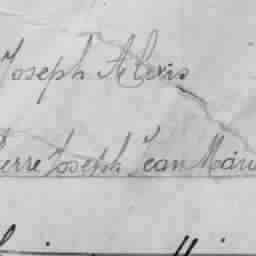 Joseph Alexis
ierre Joseph Jean Marie